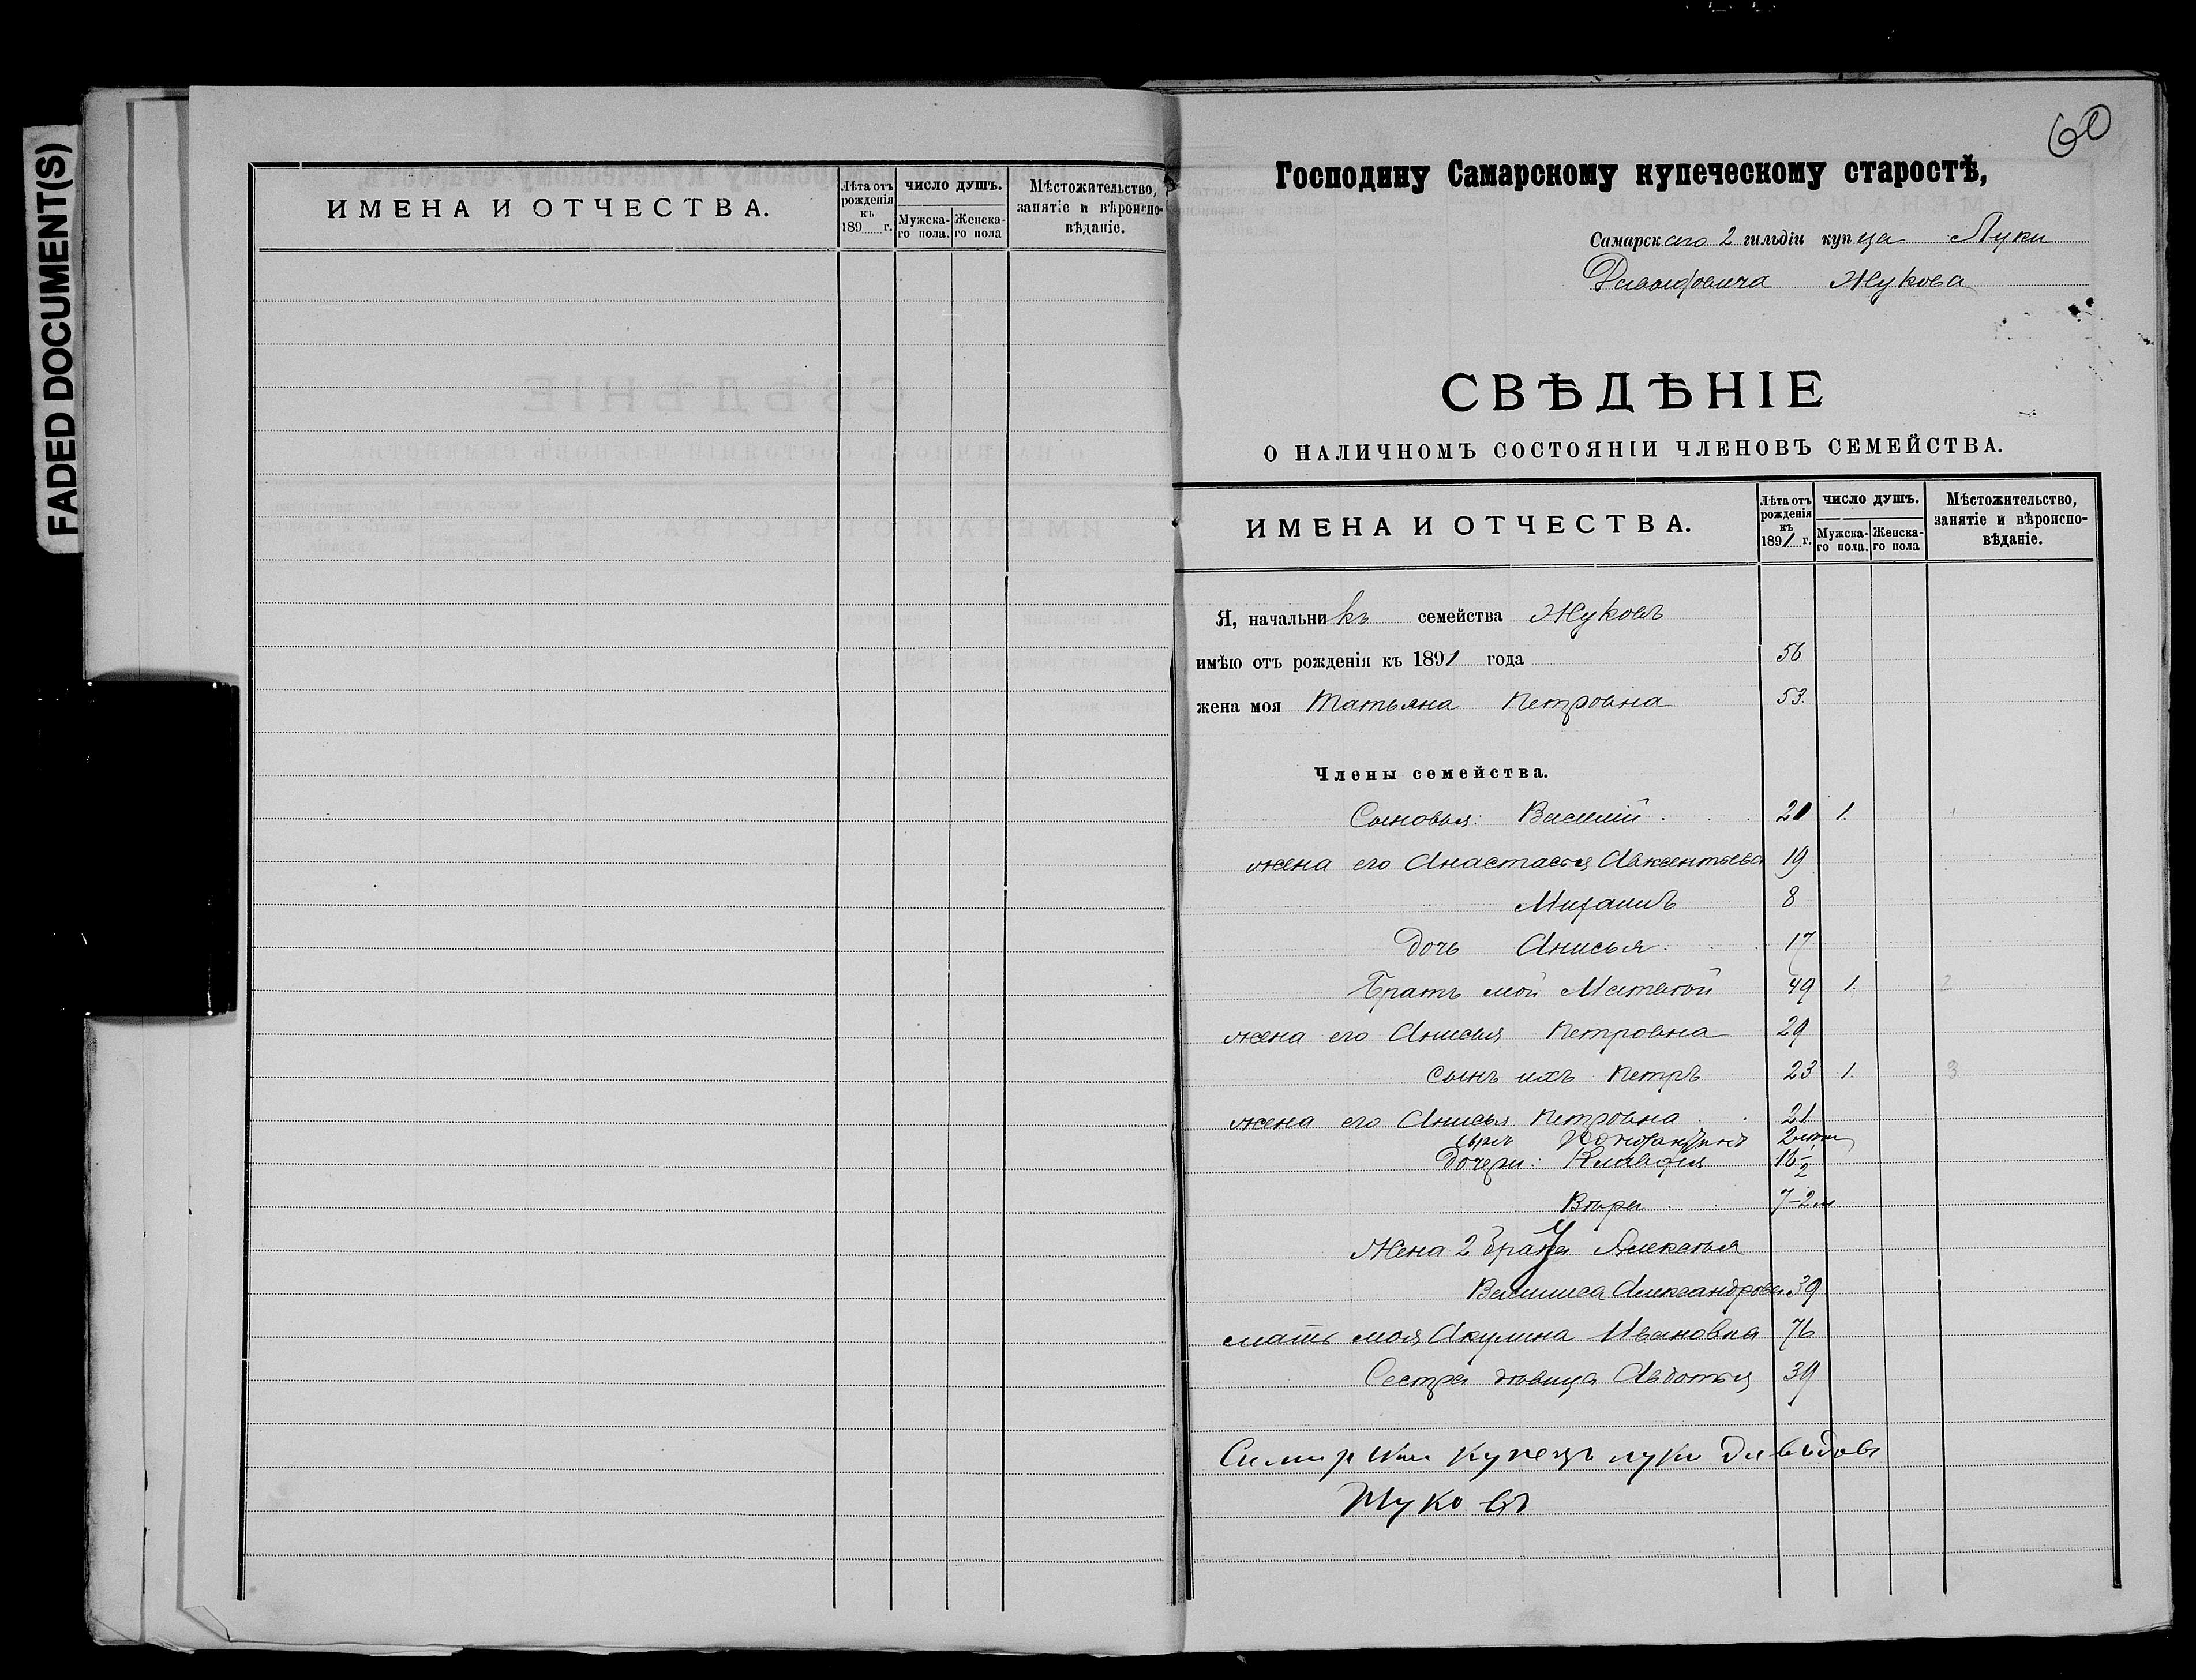 FADED DOCUMENT(S)
ИМЕНА И ОТЧЕСТВА.
Лѣта отъ рожденія къ 189 г.
ЧИСЛО ДУШЪ.
Мужска-го пола.
Женска-го пола
Мѣстожительство, занятіе и вѣроиспо-вѣданіе.
60
Господину Самарскому купеческому старостѣ,
Самарскаго 2 гильдіи купца Луки
Давыдовича Жукова
СВѢДѢНІЕ
О НАЛИЧНОМЪ СОСТОЯНІИ ЧЛЕНОВЪ СЕМЕЙСТВА.
ИМЕНА И ОТЧЕСТВА.
Лѣта отъ рожденія къ 1891 г.
ЧИСЛО ДУШЪ.
Мужска-го пола.
Женска-го пола
Мѣстожительство, занятіе и вѣроиспо-вѣданіе.
Я, начальникъ семейства Жуковъ
имѣю отъ рожденія къ 1891 года 56
жена моя Татьяна Петровна 53.
Члены семейства.
Сыновья: Василій 21 1.
жена его Анастасья Авксентьева 19
Михаилъ 8
Дочь Анисья 17
Братъ мой Матвѣй 49 1. 2
жена его Анисья Петровна 29
Сынъ ихъ Петръ 23 1. 3
жена его Анисья Петровна 21
сынъ Константинъ
Дочери: Клавдія
Вѣра 7-2 м.
Жена 2 брата Алексѣя
Василиса Александрова 39
мать моя Акулина Ивановна 76
Сестра дѣвица Авдотья 39
купецъ лука давыдовъ
Жуковъ